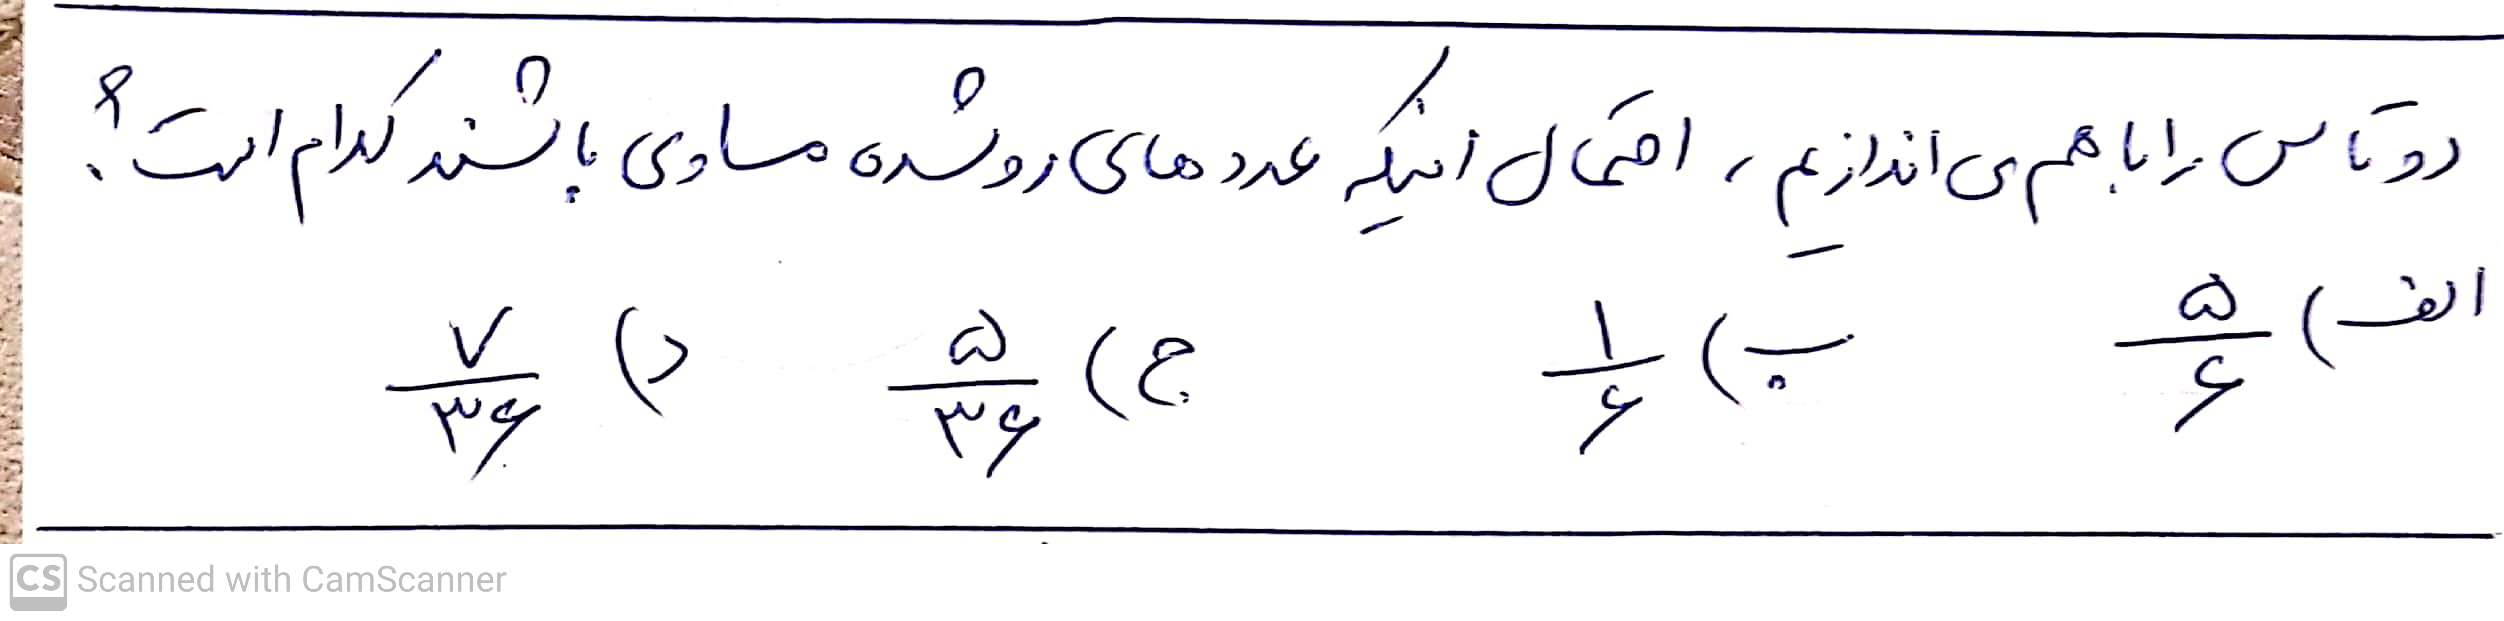 دو تاس را با هم می اندازیم، احتمال اینکه عددهای رو شده مساوی باشند کدام است؟
الف) ۵/۶ ب) ۱/۶ ج) ۵/۳۶ د) ۷/۳۶
CS Scanned with CamScanner